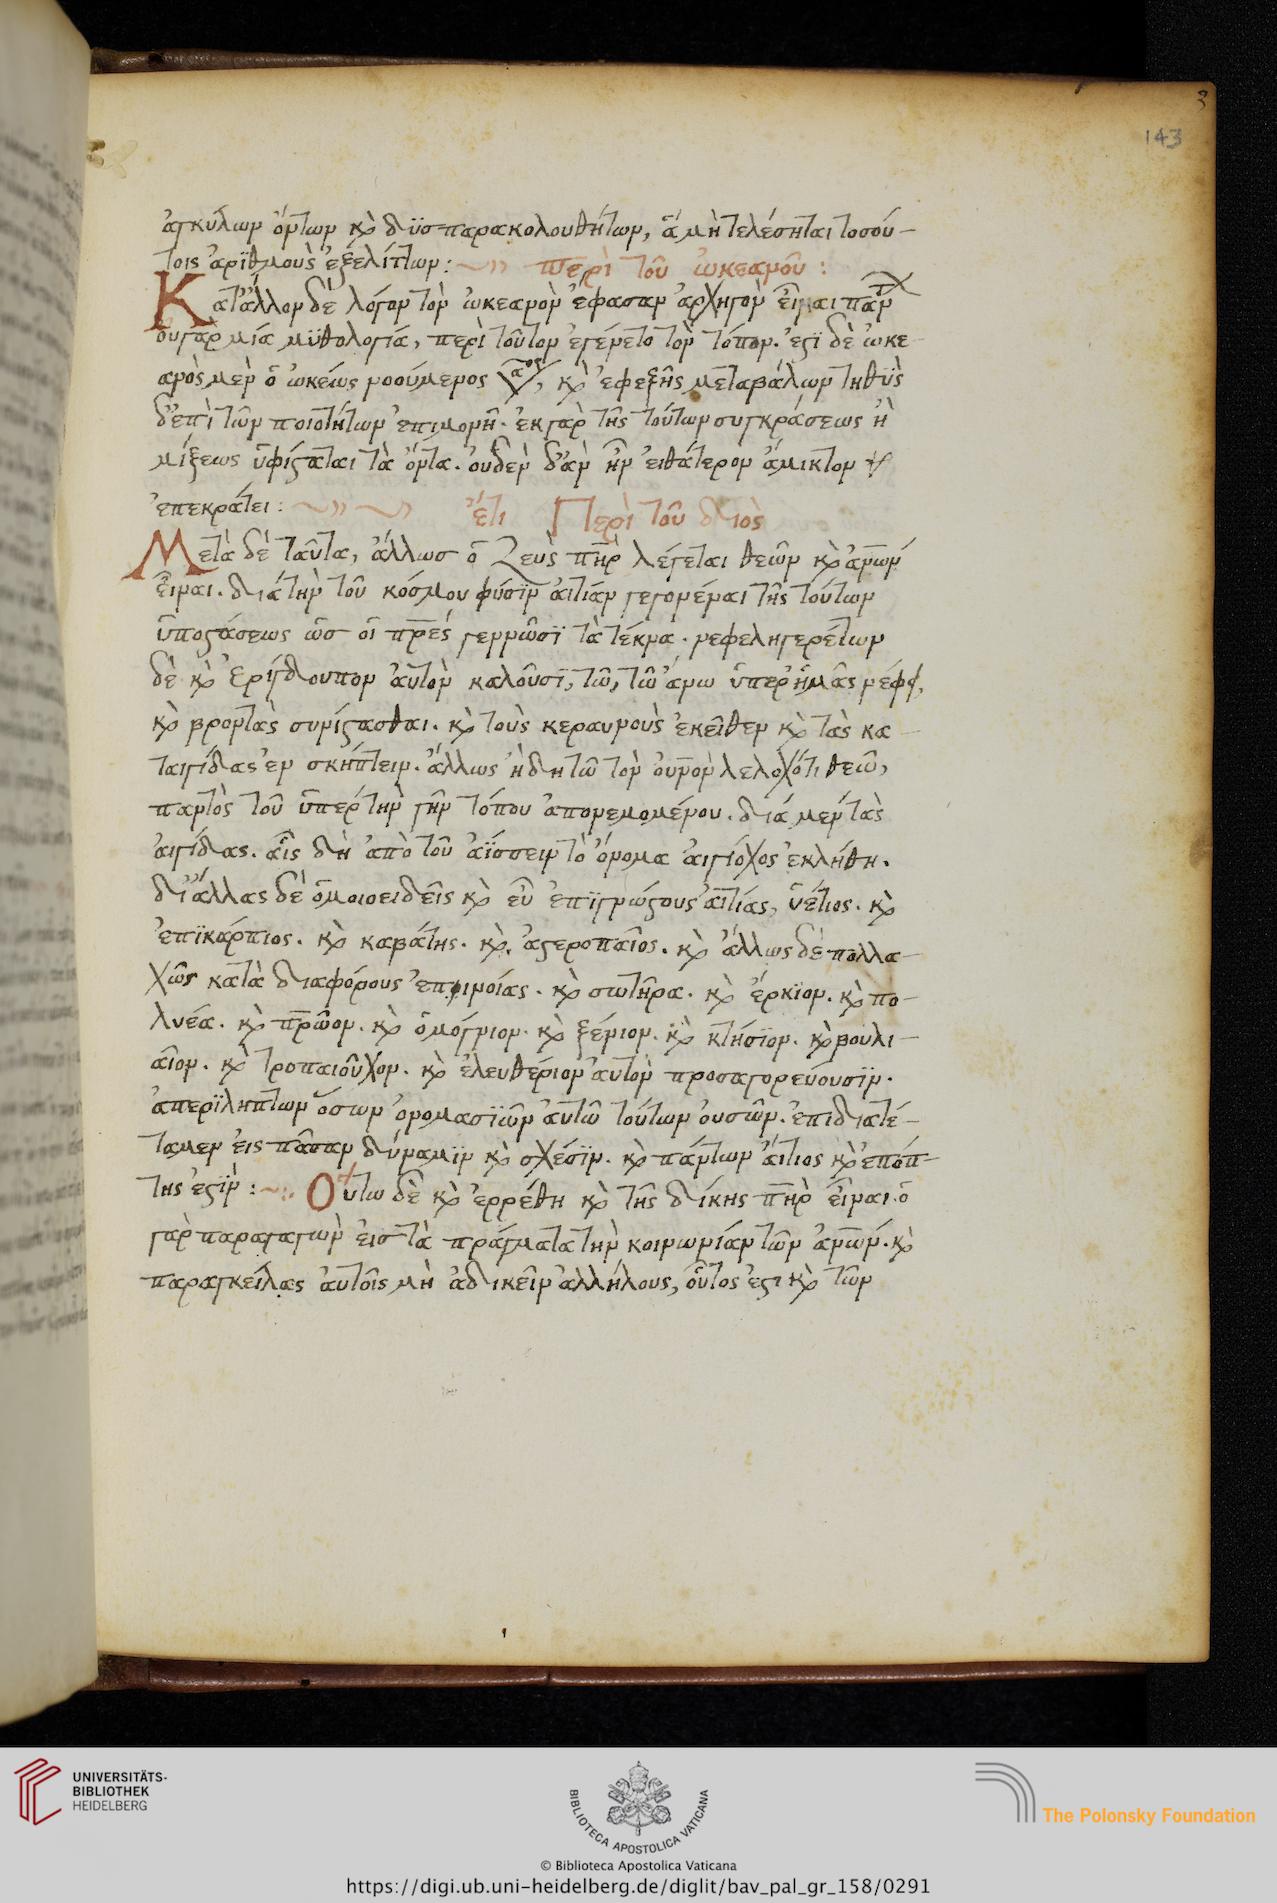 3
143
ἀγκύλων ὄντων κὶ δϋσπαρακολουθήτων, ἃ μὴ τελέσηται τοσού-
τοις ἀρϊθμοὺς ἐξελίττων: περὶ τοῦ ὠκεανοῦ:
Κατ' ἄλλον δὲ λόγον τὸν ὠκεανὸν ἔφασαν ἀρχηγὸν εἶναι πάντ
οὐ γὰρ μία μϋθολογία, περὶ τοῦτον ἐγένετο τὸν τόπον. ἐστϊ δὲ ὠκε
ανὸς μὲν ὁ ὠκέως νοούμενος, κὶ ἐφεξῆς μεταβάλων τηθϋς
δ' ἐπὶ τῶν ποιοτήτων ἐπιμονῆ. ἐκ γὰρ τῆς τούτων συγκράσεως ἢ
μίξεως ὑφίσταται τὰ ὄντα. οὐδὲν δ' ἂν ἦν εἰ θάτερον ἄμικτον
ἐπεκράτει: ἔτι Περὶ τοῦ διὸς
Μετὰ δὲ ταῦτα, ἄλλως ὁ Ζεὺς πηρ λέγεται θεῶν κὶ ἀνων
εἶναι. διὰ τὴν τοῦ κόσμου φύσϊν αἰτίαν γεγονέναι τῆς τούτων
ὑποστάσεως ὡς οἱ πρες γεννῶσϊ τὰ τέκνα. νεφεληγερέτων
δὲ κὶ ἐρίγδουπον αὐτὸν καλοῦσϊ, τῶ, τῶ ἄνω ὑπερ ἡμᾶς νέφ,
κὶ βροντὰς συνίστασθαι. κὶ τοὺς κεραυνοὺς ἐκεῖθεν κὶ τὰς κα
ταιγίδας ἐν σκήπτειν. ἄλλως ἤδη τῶ τὸν οὐνον λελοχότι θεῶ,
παντὸς τοῦ ὑπὲρ τὴν γῆν τόπου ἀπονεμομένου. διὰ μὲν τὰς
αἰγίδας. αἷς δὴ ἀπὸ τοῦ ἀΐσσειν τὸ ὄνομα αἰγίοχος ἐκλήθη.
δι' ἄλλας δὲ ὁμοιοειδεῖς κὶ εὖ ἐπϊγνώστους αἰτίας, ὑέτιος. κὶ
ἐπϊκάρπιος. κὶ καβάτης. κὶ ἀστεροπαῖος. κὶ ἄλλως δὲ πολλα-
χῶς κατὰ διαφόρους ἐπινοίας. κὶ σωτῆρα. κὶ ἔρκϊον. κὶ πο-
λνέα. κὶ πρῶον. κὶ ὁμόγνιον. κὶ ξένιον. κὶ κτήσϊον. κὶ βουλι-
αῖον. κὶ τροπαιοῦχον. κὶ ἐλευθέριον αὐτὸν προσαγορεύουσϊν.
ἀπερϊλήπτων ὅσων ὀνομασϊῶν αὐτῶ τούτων οὐσῶν. ἐπιδιατέ-
ταμεν εἰς πᾶσαν δύναμϊν κὶ σχέσϊν. κὶ πάντων αἴτιος κὶ ἐπόπ-
της ἐστϊν: Οὕτω δὲ κὶ ἐρρέθη κὶ τῆς δίκης πηρ εἶναι. ὁ
γὰρ παραγαγὼν εἰς τὰ πράγματα τὴν κοινωνίαν τῶν ἀνων. κὶ
παραγκείλας αὐτοῖς μὴ ἀδικεῖν ἀλλήλους, οὗτος ἐστι κὶ τῶν
UNIVERSITÄTS-
BIBLIOTHEK
HEIDELBERG
BIBLIOTECA APOSTOLICA VATICANA
The Polonsky Foundation
© Biblioteca Apostolica Vaticana
https://digi.ub.uni-heidelberg.de/diglit/bav_pal_gr_158/0291